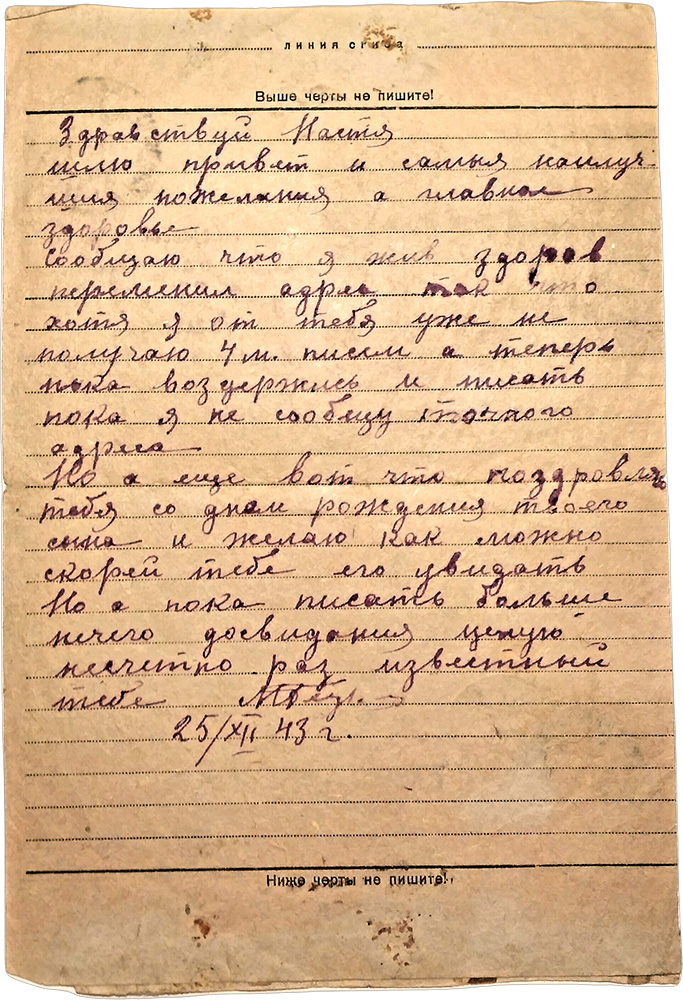 линия сгиба
Выше черты не пишите!
Здравствуй Настя
шлю привет и самыя наилуч-
шия пожелания а главное
здоровье
Сообщаю что я жив здоров
переменил адрес так что
хотя я от тебя уже не
получаю 4 м. писем а теперь
пока воздержись и писать
пока я не сообщу точного
адреса
Но а еще вот что поздровляю
тебя со днем рождения твоего
сына и желаю как можно
скорей тебе его увидать
Но а пока писать больше
нечего досвидания целую
несчетно раз известный
тебе
25/XII 43 г.
Ниже черты не пишите!